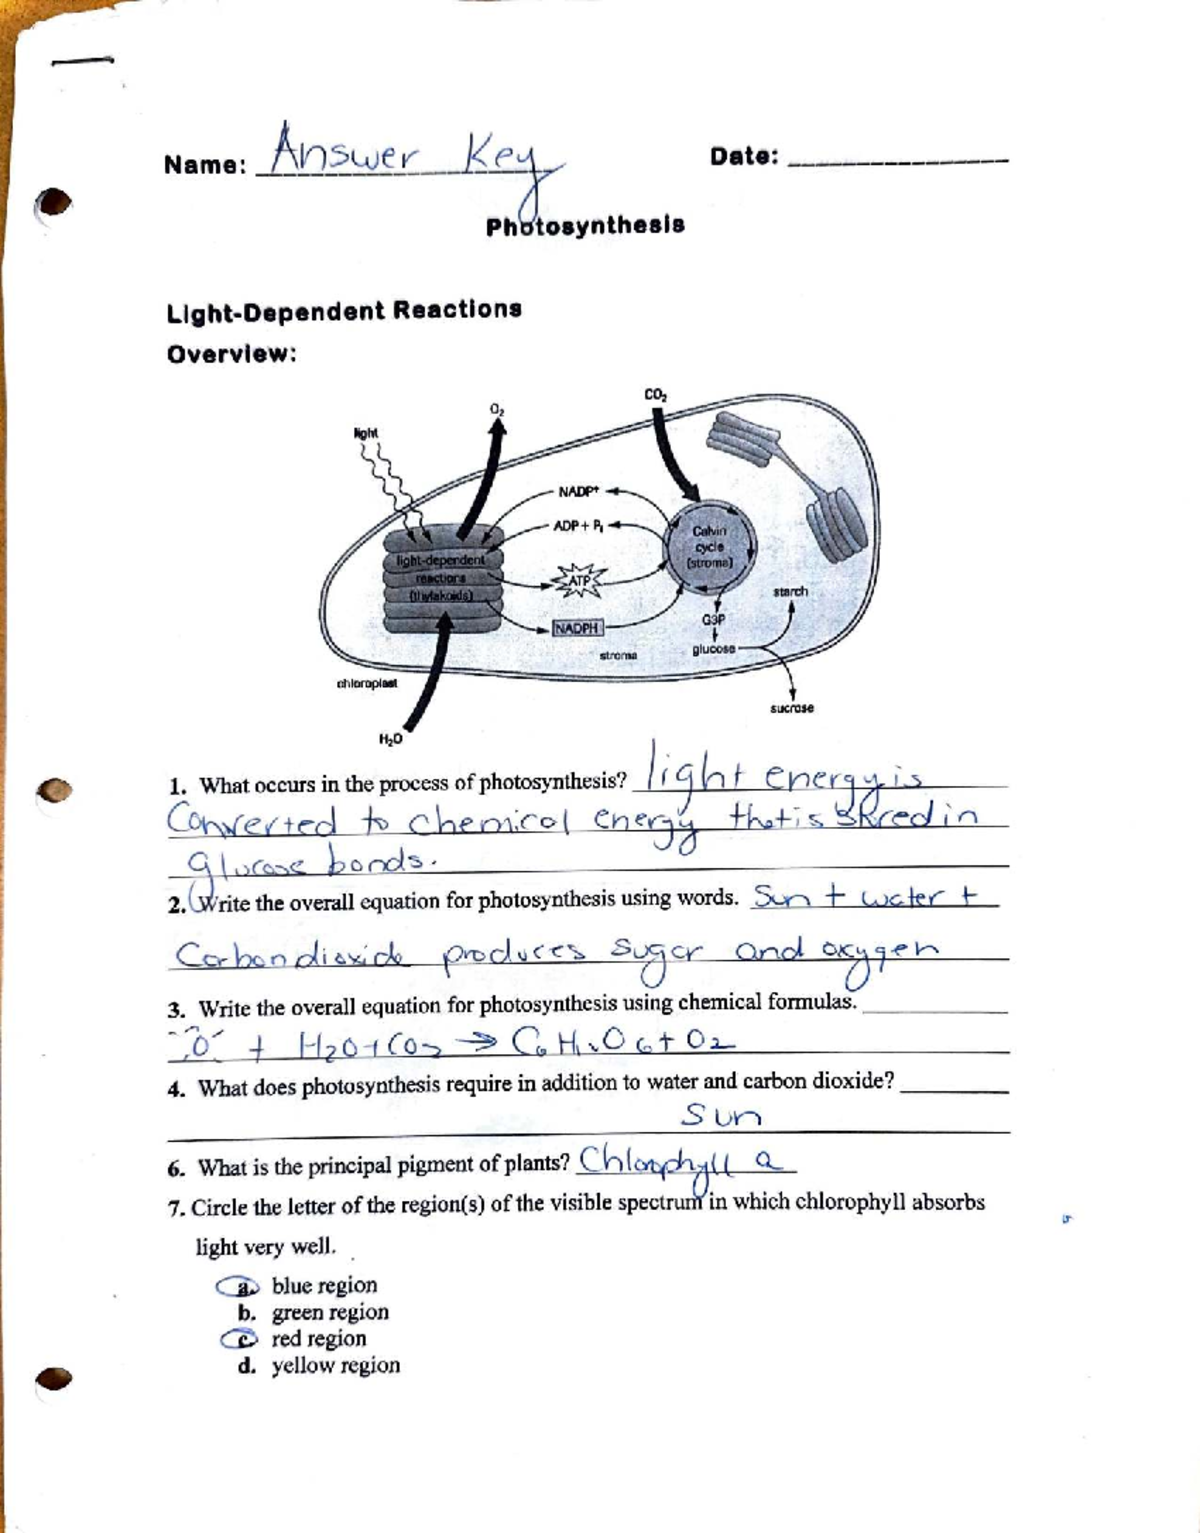 Name: Answer Key Date:
Photosynthesis
Light-Dependent Reactions
Overview:
CO₂
O₂
light
NADP⁺
ADP + Pᵢ
Calvin
cycle
(stroma)
light-dependent
reactions
(thylakoids)
ATP
starch
G3P
NADPH
glucose
stroma
chloroplast
sucrose
H₂O
1. What occurs in the process of photosynthesis? light energy is
Converted to chemical energy that is stored in
glucose bonds.
2. Write the overall equation for photosynthesis using words. Sun + water +
Carbon dioxide produces sugar and oxygen
3. Write the overall equation for photosynthesis using chemical formulas.
+ H2O + CO2 → C6H12O6 + O2
4. What does photosynthesis require in addition to water and carbon dioxide?
Sun
6. What is the principal pigment of plants? Chlorophyll a
7. Circle the letter of the region(s) of the visible spectrum in which chlorophyll absorbs
light very well.
a. blue region
b. green region
c. red region
d. yellow region